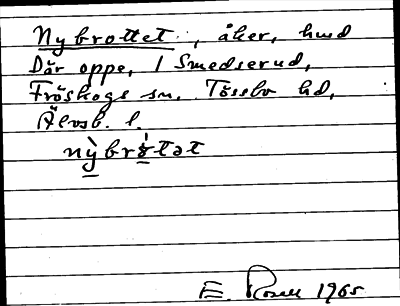 Nybrottet, åker, hmd
Där oppe, 1 Smedserud,
Fröskogs sn, Tössbo hd,
Älvsb. l.
nỳbrötət
E. Rosell 1965